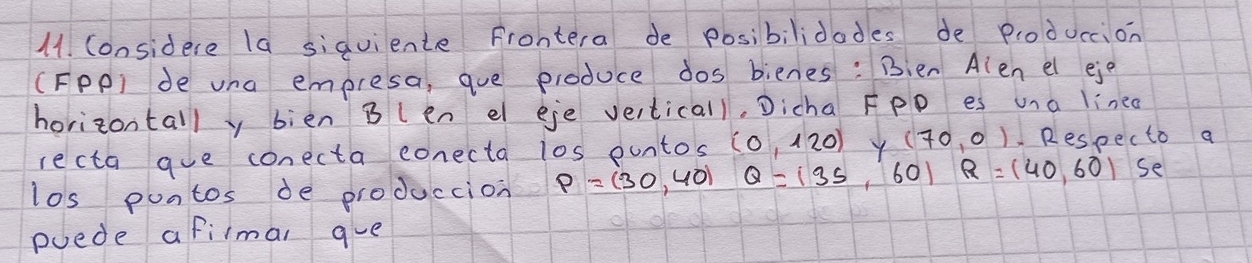 11. Considere la siguiente Frontera de posibilidades de producción
(FPP) de una empresa, que produce dos bienes: Bien A(en el eje
horizontal) y bien B(en el eje vertical). Dicha FPP es una linea
recta que conecta conecta los puntos (0, 120) y (70,0). Respecto a
los puntos de produccion P=(30,40) Q=(35, 60) R=(40,60) se
puede afirmar que